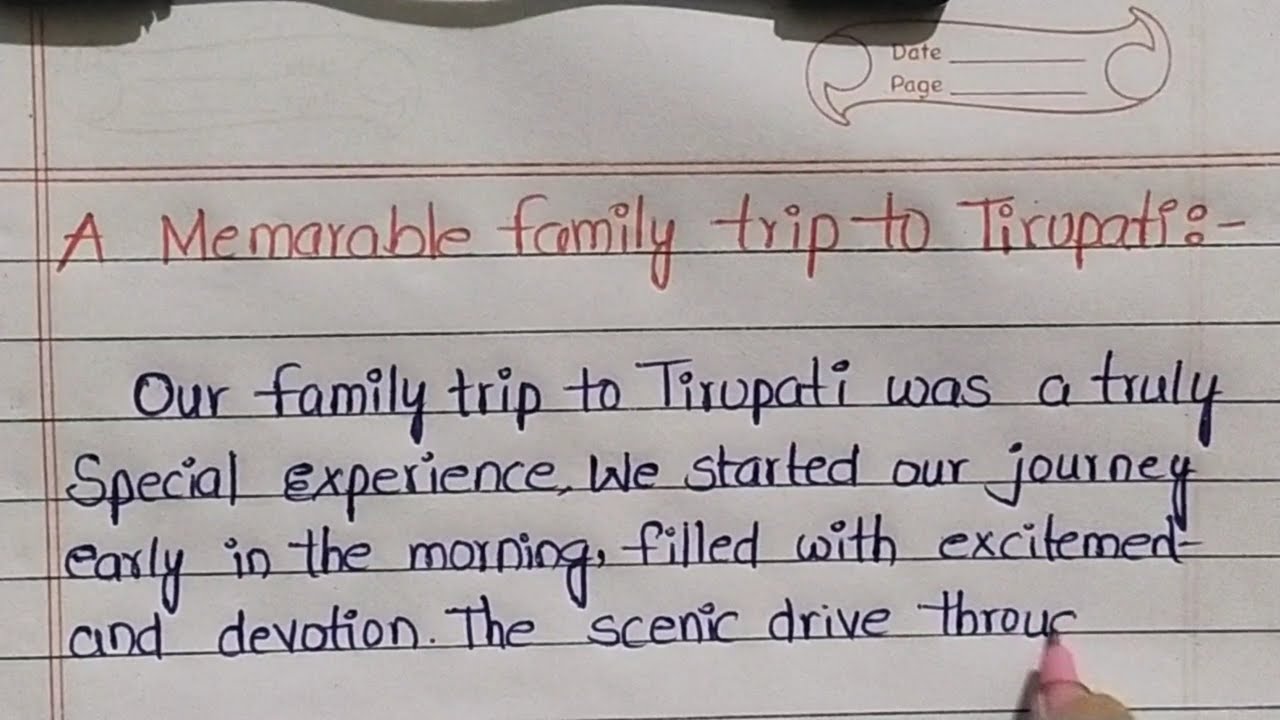 Date
Page
A Memarable family trip to Tirupati:-
Our family trip to Tirupati was a truly
Special experience. We started our journey
early in the morning, filled with excitemed-
and devotion. The scenic drive throug